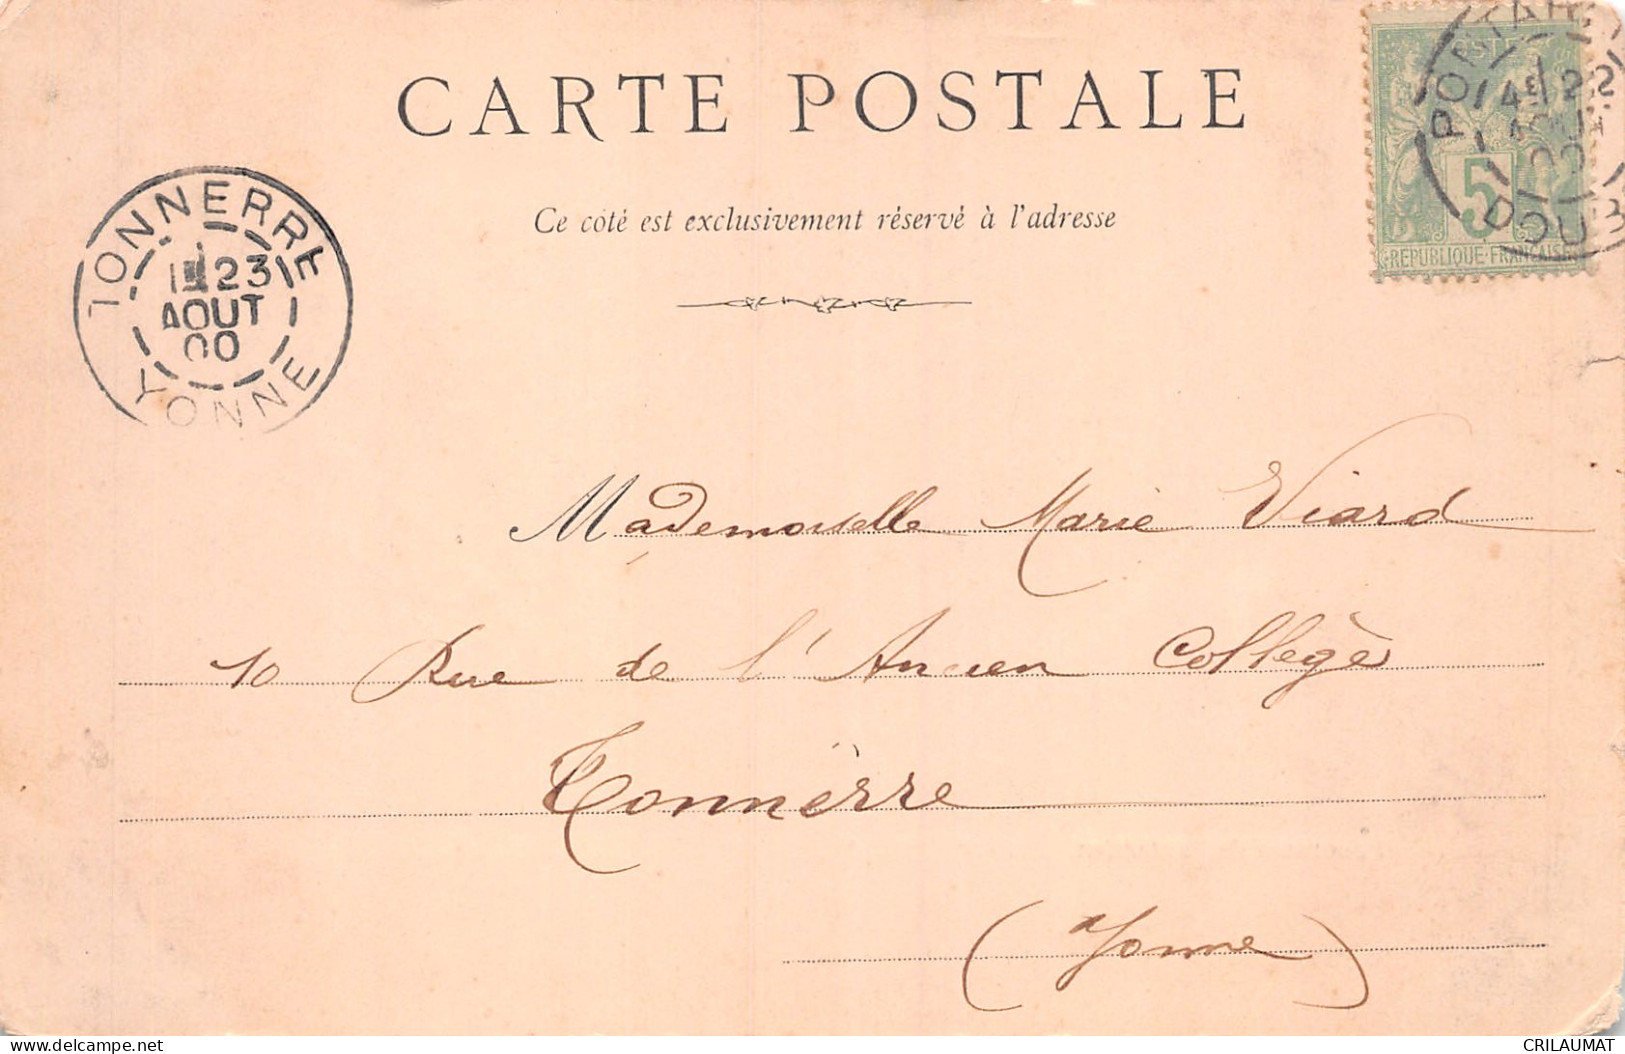 CARTE POSTALE
Ce côté est exclusivement réservé à l'adresse
TONNERRE
23
AOUT
00
YONNE
POSTES
5
REPUBLIQUE FRANCAISE
PONTARL
4E 22
AOUT
00
DOUB
Mademoiselle Marie Viard
10 Rue de l'Ancien Collège
Tonnèrre
(Yonne)
delcampe.net
CRILAUMAT